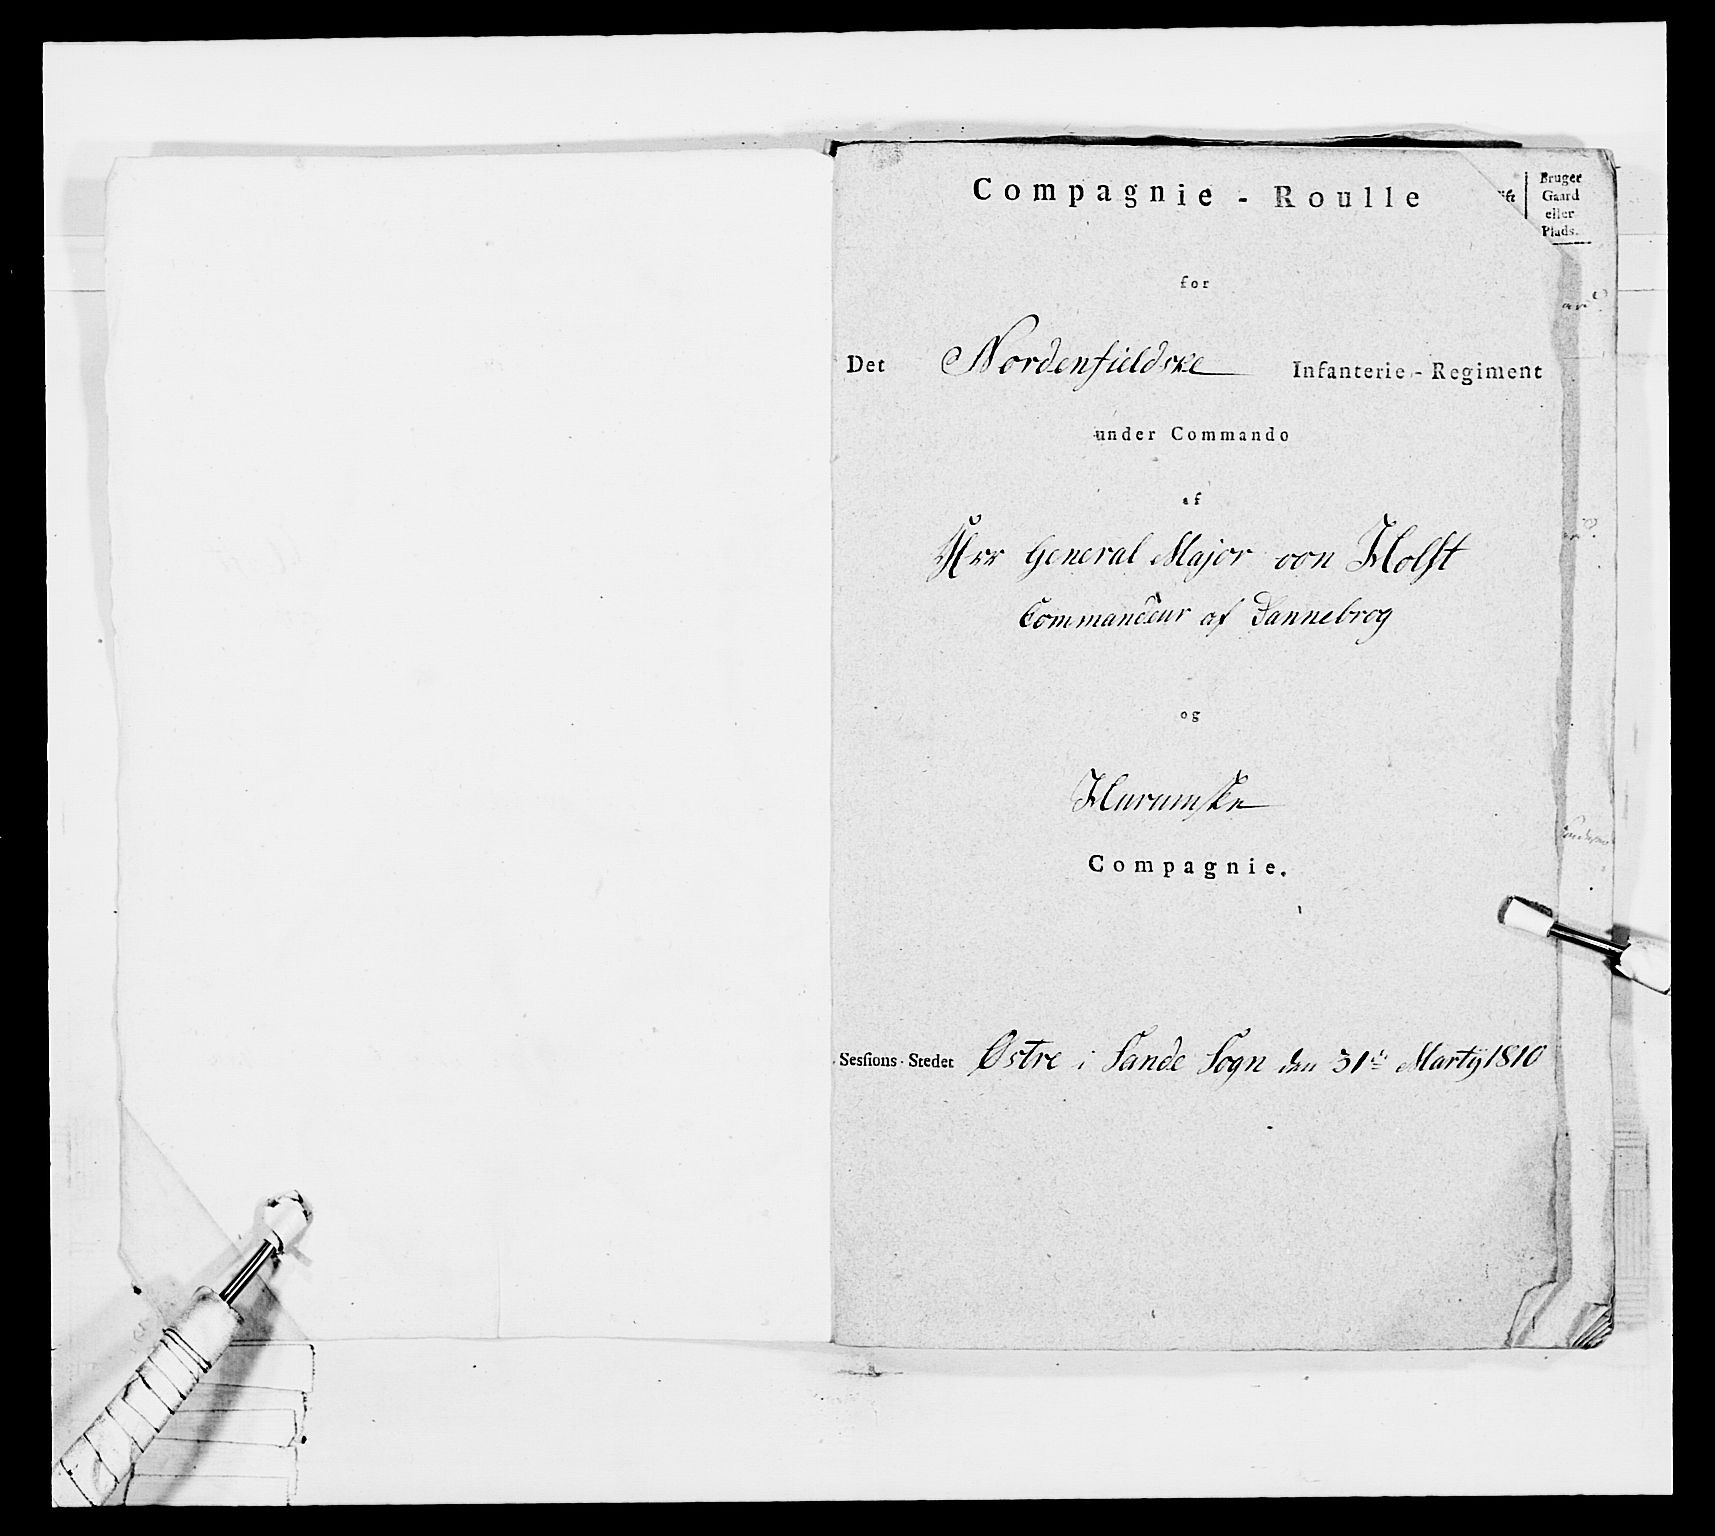 Compagnie - Roulle
for
Det Nordenfieldske Infanterie - Regiment
under Commando
af
Herr General Major von Holst
Commandeur af Dannebrog
og
Hurumske
Compagnie.
Sesſions - Stedet Østre i Sande Sogn den 31te Martÿ 1810
Bruger
Gaard
eller
Plads.